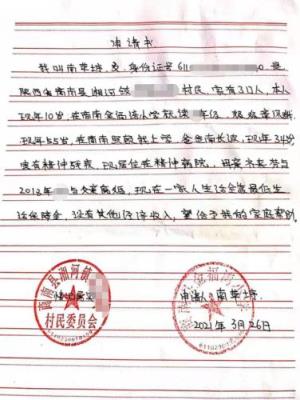 申请书
我叫南草婷,女,身份证号611 0 是
陕西省商南县湘河镇 村民,家有3口人,本人
现年10岁,在商南金福湾小学就读 年级,
现年55岁,在商南照顾我上学,爸爸南长波,现年34岁
患有精神残疾,现居住在精神病院,妈妈
2013年 与父亲离婚,现在一家人生活全靠最低生
活保障金,没有其他经济收入,望给予我的家庭帮助
商南县湘河镇
村民委员会
申请人:南草婷
2021年3月26日
金福湾小学